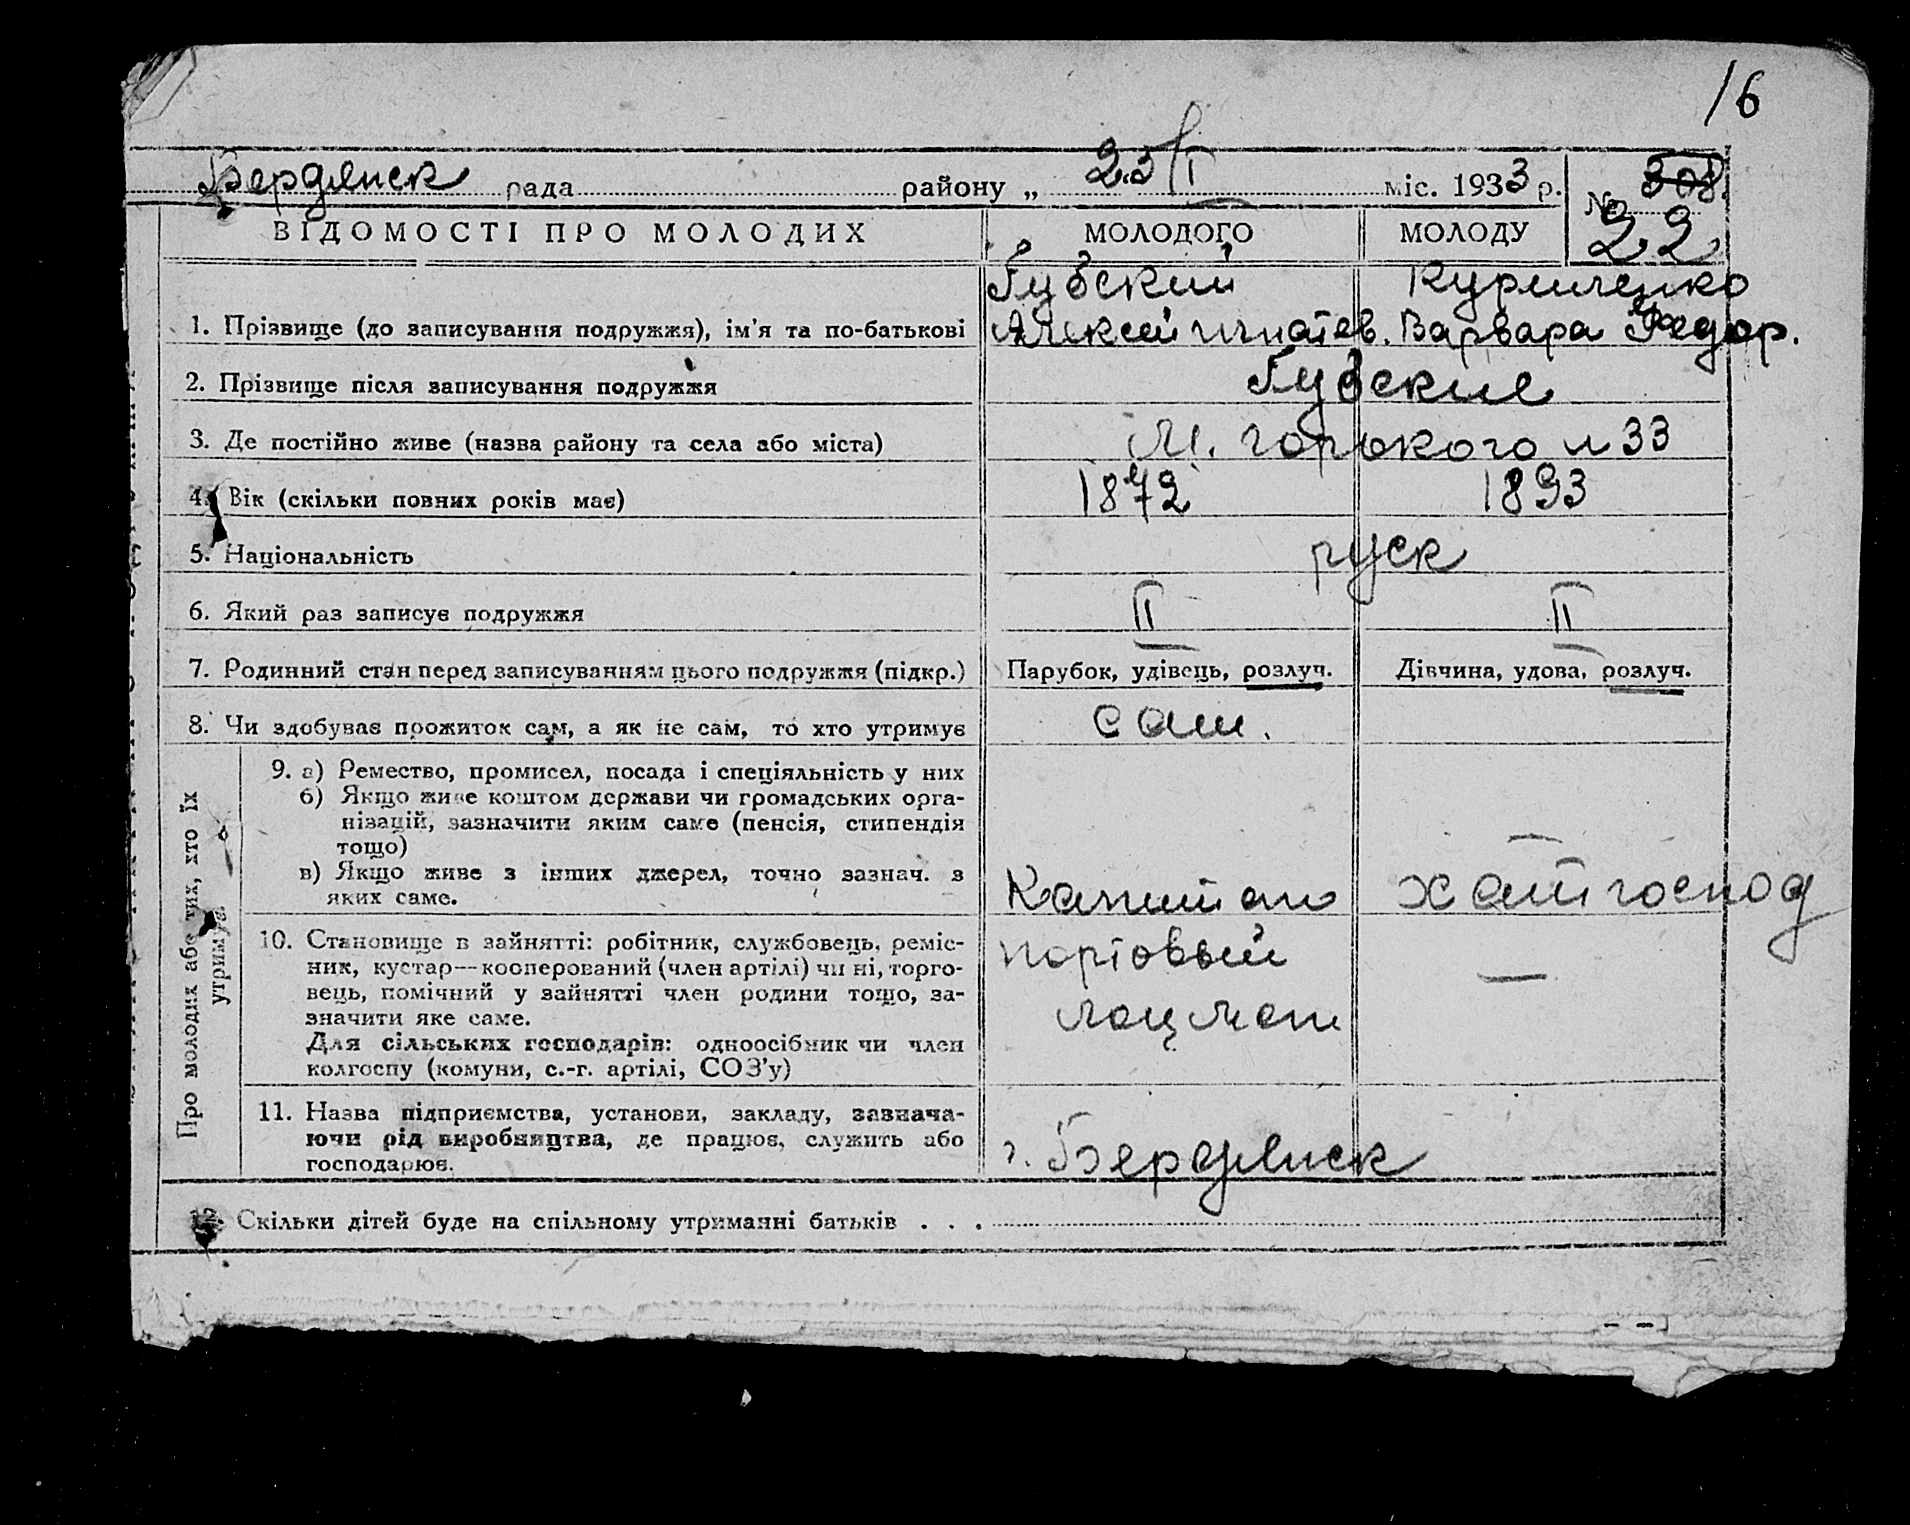 16
Бердянск рада району „ 23/I міс. 1933 р. № 308
22
ВІДОМОСТІ ПРО МОЛОДИХ МОЛОДОГО МОЛОДУ
Губский
1. Прізвище (до записування подружжя), ім'я та по-батькові Алексей Игнатев. Варвара Федор.
2. Прізвище після записування подружжя Губские
3. Де постійно живе (назва району та села або міста) М. Горького № 33
4. Вік (скільки повних років має) 1872 1893
5. Національність руск
6. Який раз записує подружжя II II
7. Родинний стан перед записуванням цього подружжя (підкр.) Парубок, удівець, розлуч. Дівчина, удова, розлуч.
8. Чи здобуває прожиток сам, а як не сам, то хто утримує сам.
Про молодих або тих, хто їх
утримує
9. а) Ремество, промисел, посада і спеціяльність у них
б) Якщо живе коштом держави чи громадських орга-
нізацій, зазначити яким саме (пенсія, стипендія
тощо)
в) Якщо живе з інших джерел, точно зазнач. з
яких саме.
Капитан хатн господ
10. Становище в зайнятті: робітник, службовець, реміс-
ник, кустар—кооперований (член артілі) чи ні, торго-
вець, помічний у зайнятті член родини тощо, за-
значити яке саме.
Для сільських господарів: одноосібник чи член
колгоспу (комуни, с.-г. артілі, СОЗ'у)
портовый —
лоцман
11. Назва підприємства, установи, закладу, зазнача-
ючи рід виробництва, де працює, служить або
господарює.
г. Бердянск
12. Скільки дітей буде на спільному утриманні батьків . . .